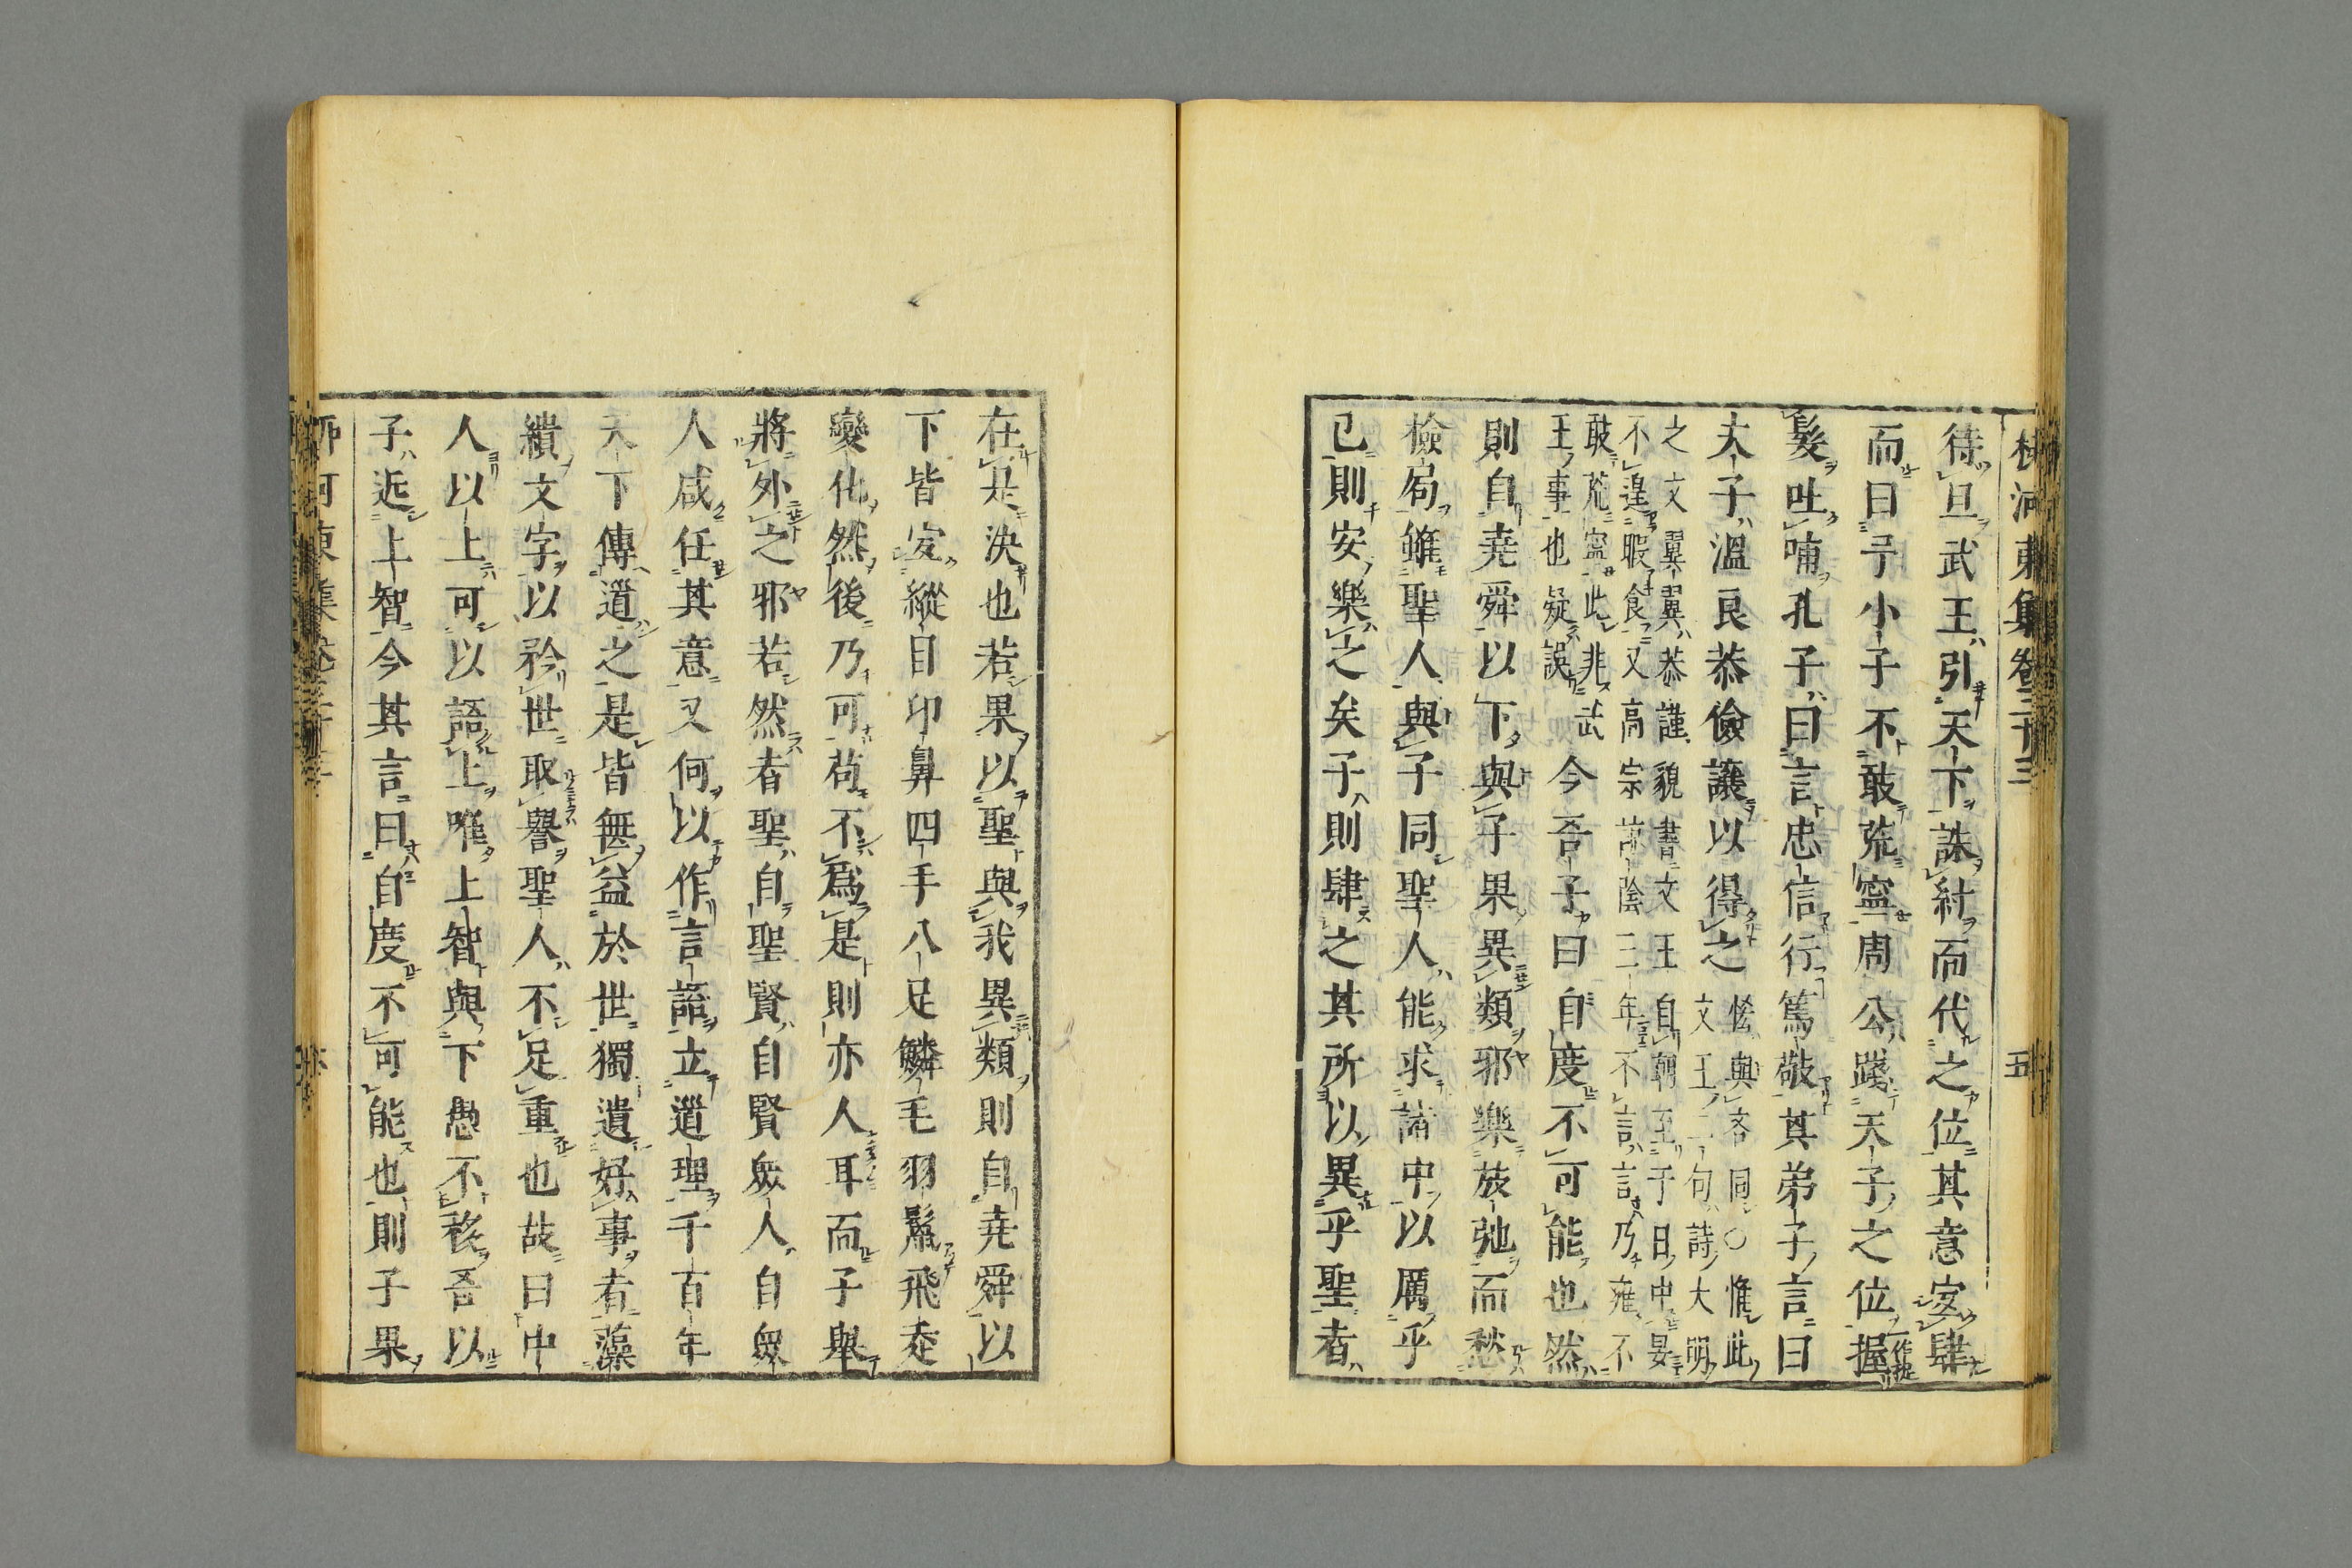 柳河東集卷三十三
五
待旦武王引天下誅紂而代之位其意宐肆
而曰予小子不敢荒寧周公踐天子之位握一作捉
髮吐哺孔子曰言忠信行篤敬其弟子言曰
夫子溫良恭儉讓以得之恡與吝同○惟此
文王一句詩大明
之文翼翼恭謹貌書文王自朝至于日中昃
不遑暇食又高宗諒陰三年不言言乃雍不
敢荒寧此非武
王事也疑誤今吾子曰自度不可能也然
則自堯舜以下與子果異類邪樂放弛而愁
檢局雖聖人與子同聖人能求諸中以厲乎
已則安樂之矣子則肆之其所以異乎聖者
在是決也若果以聖與我異類則自堯舜以
下皆宐縱目卬鼻四手八足鱗毛羽鬣飛走
變化然後乃可苟不爲是則亦人耳而子舉
將外之邪若然者聖自聖賢自賢衆人自衆
人咸任其意又何以作言語立道理千百年
天下傳道之是皆無益於世獨遺好事者藻
繢文字以矜世取譽聖人不足重也故曰中
人以上可以語上唯上智與下愚不移吾以
子近上智今其言曰自度不可能也則子果
柳河東集卷三十三
六